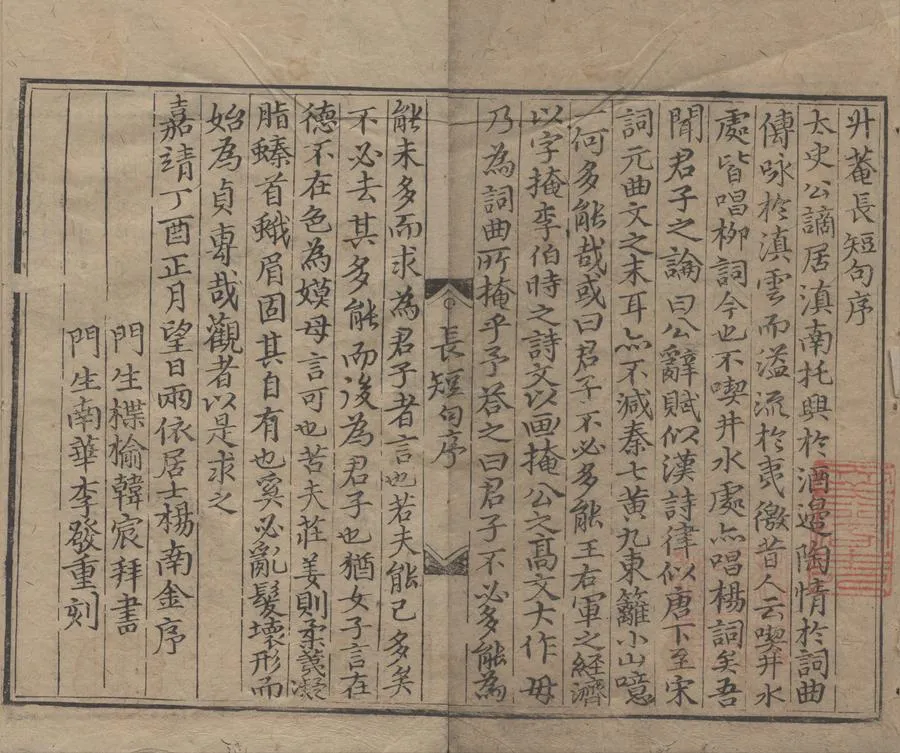 升菴長短句序
太史公謫居滇南托興於酒邊陶情於詞曲
傳咏於滇雲而溢流於夷徼昔人云喫井水
處皆唱柳詞今也不喫井水處亦唱楊詞矣吾
聞君子之論曰公辭賦似漢詩律似唐下至宋
詞元曲文之末耳亦不減秦七黄九東籬小山噫
何多能哉或曰君子不必多能王右軍之經濟
以字掩李伯時之詩文以画掩公之髙文大作毋
乃為詞曲所掩乎予答之曰君子不必多能為
長短句序
能未多而求為君子者言也若夫能已多矣
不必去其多能而後為君子也猶女子言在
德不在色為嫫母言可也苦夫莊姜則柔荑凝
脂螓首蛾眉固其自有也奚必亂髮壞形而
始為貞專哉觀者以是求之
嘉靖丁酉正月望日兩依居士楊南金序
門生楪榆韓宸拜書
門生南華李發重刻